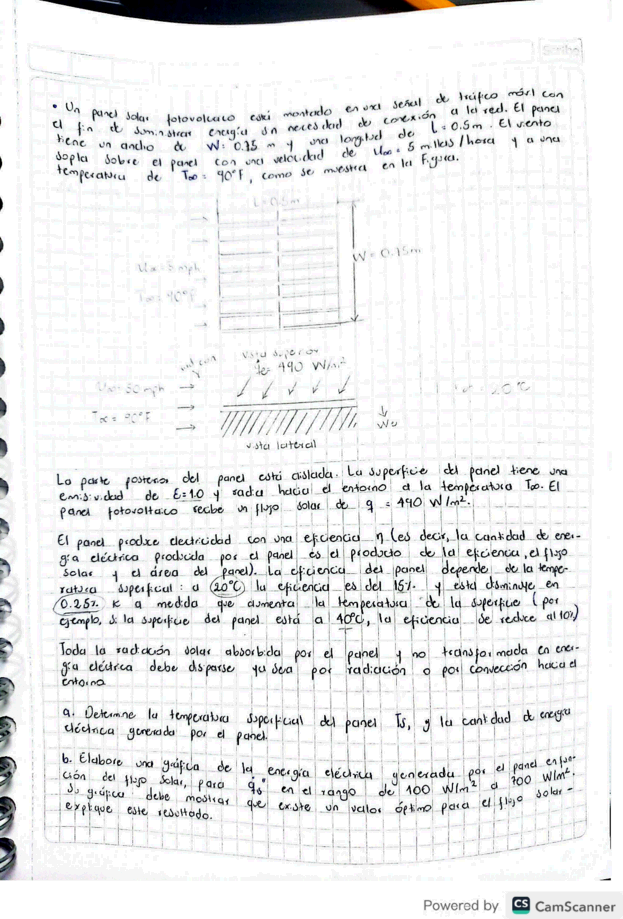 Scribe
• Un panel solar fotovoltaico está montado en una señal de tráfico móvil con
el fin de suministrar energía sin necesidad de conexión a la red. El panel
tiene un ancho de W= 0.75 m y una longitud de L= 0.5m. El viento
sopla sobre el panel con una velocidad de U∞= 5 millas/hora y a una
temperatura de T∞= 90°F, como se muestra en la Figura.
L=0.5m
W= 0.75m
U∞= 5 mph
T∞= 90°F
Vista superior
qs= 490 W/m²
U∞= 50 mph
T∞= 90°F
20°C
vista lateral
La parte posterior del panel está aislada. La superficie del panel tiene una
emisividad de ε=1.0 y radia hacia el entorno a la temperatura T∞. El
panel fotovoltaico recibe un flujo solar de q = 490 W/m².
El panel produce electricidad con una eficiencia η (es decir, la cantidad de ener-
gía eléctrica producida por el panel es el producto de la eficiencia, el flujo
solar y el área del panel). La eficiencia del panel depende de la tempe-
ratura superficial: a 20°C la eficiencia es del 15% y esta disminuye en
0.25% K a medida que aumenta la temperatura de la superficie (por
ejemplo, si la superficie del panel está a 40°C, la eficiencia se reduce al 10%)
Toda la radiación solar absorbida por el panel y no transformada en ener-
gía eléctrica debe disparse ya sea por radiación o por convección hacia el
entorno
a. Determine la temperatura superficial del panel Ts, y la cantidad de energía
eléctrica generada por el panel.
b. Elabore una gráfica de la energía eléctrica generada por el panel en fun-
ción del flujo solar, para qs" en el rango de 100 W/m² a 700 W/m².
Su gráfica debe mostrar que existe un valor óptimo para el flujo solar -
explique este resultado.
Powered by CS CamScanner